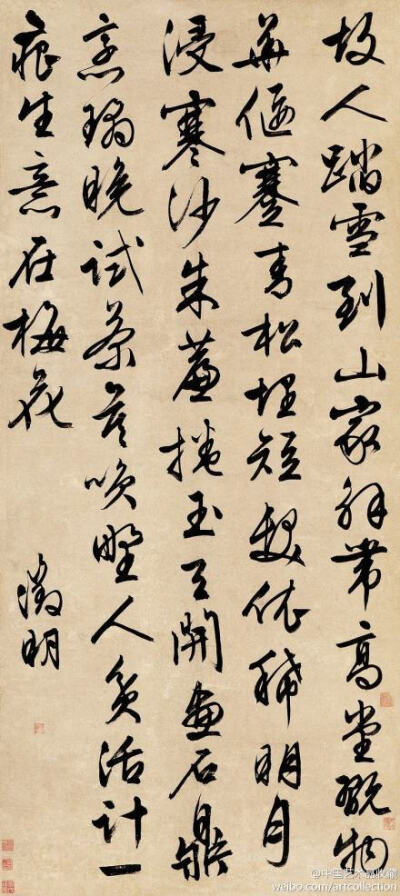 故人踏雪到山家解帶高堂翫物
華偃蹇青松埋短鬣依稀明月
浸寒沙朱簾捲玉天開畫石鼎
烹璚晚試茶莫咲野人貧活計一
痕生意在梅花
徵明
@中国艺术品收藏
weibo.com/artcollection